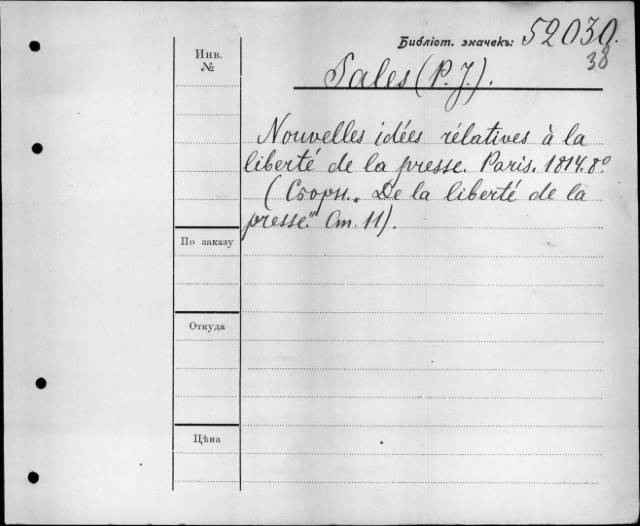 Библіот. значекъ: 52030.
38
Инв.
№
Sales (P. J.).
Nouvelles idées rélatives à la
liberté de la presse. Paris. 1814. 8º
(Сборн. „De la liberté de la
presse." Ст. 11).
По заказу
Откуда
Цѣна